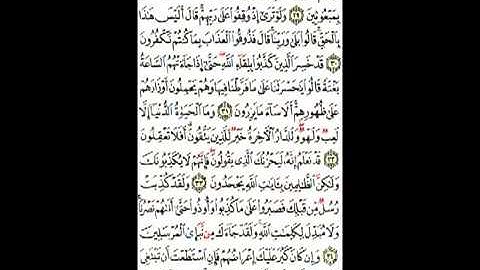 بِمَبْعُوثِينَ ٢٩ وَلَوْ تَرَىٰ إِذْ وُقِفُوا عَلَىٰ رَبِّهِمْ قَالَ أَلَيْسَ هَٰذَا
بِالْحَقِّ قَالُوا بَلَىٰ وَرَبِّنَا قَالَ فَذُوقُوا الْعَذَابَ بِمَا كُنتُمْ تَكْفُرُونَ
٣٠ قَدْ خَسِرَ الَّذِينَ كَذَّبُوا بِلِقَاءِ اللَّهِ حَتَّىٰ إِذَا جَاءَتْهُمُ السَّاعَةُ
بَغْتَةً قَالُوا يَا حَسْرَتَنَا عَلَىٰ مَا فَرَّطْنَا فِيهَا وَهُمْ يَحْمِلُونَ أَوْزَارَهُمْ
عَلَىٰ ظُهُورِهِمْ أَلَا سَاءَ مَا يَزِرُونَ ٣١ وَمَا الْحَيَاةُ الدُّنْيَا إِلَّا
لَعِبٌ وَلَهْوٌ وَلَلدَّارُ الْآخِرَةُ خَيْرٌ لِّلَّذِينَ يَتَّقُونَ أَفَلَا تَعْقِلُونَ
٣٢ قَدْ نَعْلَمُ إِنَّهُ لَيَحْزُنُكَ الَّذِي يَقُولُونَ فَإِنَّهُمْ لَا يُكَذِّبُونَكَ
وَلَٰكِنَّ الظَّالِمِينَ بِآيَاتِ اللَّهِ يَجْحَدُونَ ٣٣ وَلَقَدْ كُذِّبَتْ
رُسُلٌ مِّن قَبْلِكَ فَصَبَرُوا عَلَىٰ مَا كُذِّبُوا وَأُوذُوا حَتَّىٰ أَتَاهُمْ نَصْرُنَا
وَلَا مُبَدِّلَ لِكَلِمَاتِ اللَّهِ وَلَقَدْ جَاءَكَ مِن نَّبَإِ الْمُرْسَلِينَ
٣٤ وَإِن كَانَ كَبُرَ عَلَيْكَ إِعْرَاضُهُمْ فَإِنِ اسْتَطَعْتَ أَن تَبْتَغِيَ